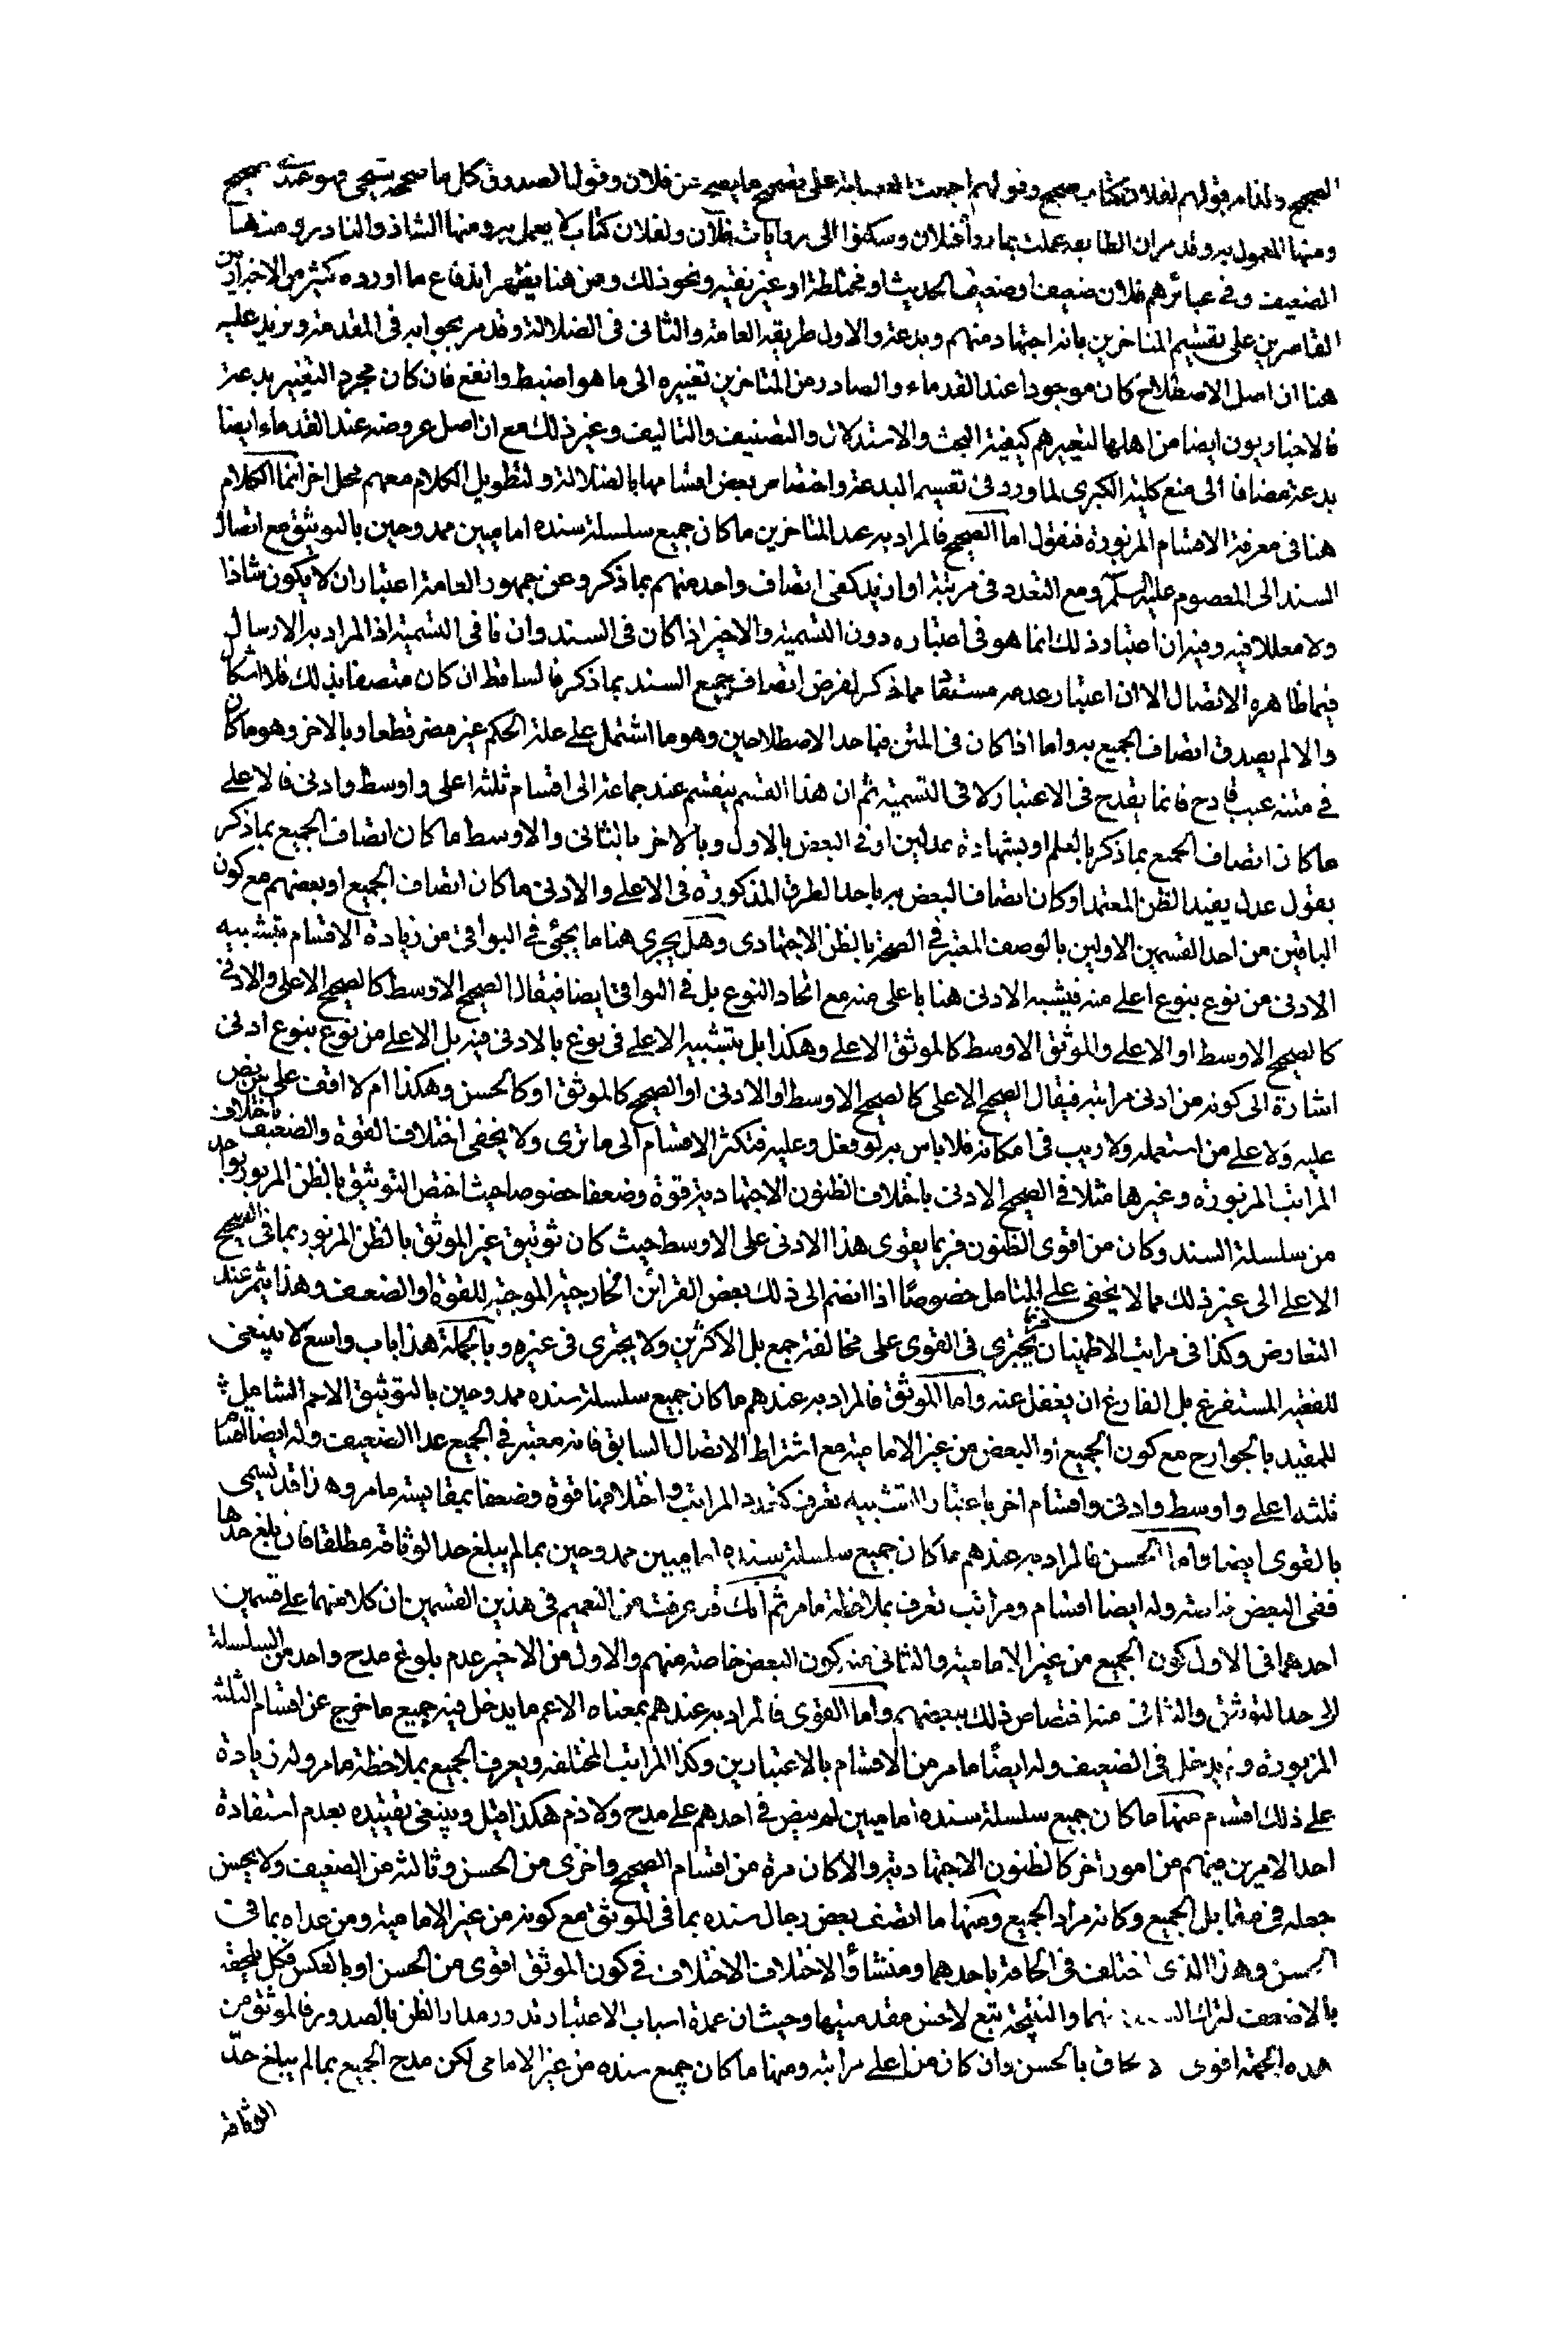 الصحيح ولذا مر قولهم لفلان كتاب صحيح وقولهم اجمعت العصابة على تصحيح ما يصح عن فلان وقول الصدوق كل ما صححه شيخى فهو عندى صحيح
ومنها المعمول به وقد مر ان الطايفه عملت بما رواه فلان وسكنوا الى روايات فلان ولفلان كتاب لا يعمل به ومنها الشاذ والنادر ومنها
الضعيف وفى عبائرهم فلان ضعيف او ضعيف الحديث او مختلطة او غير نقيه ونحو ذلك ومن هنا يظهر اندفاع ما اورده كثير من الاخباريين
القاصرين على تقسيم المتاخرين بانه اجتهاد منهم وبدعة والاول طريقه العامة والثانى فى الضلالة وقد مر بجوابه فى المقدمة ونزيد عليه
هنا ان اصل الاصطلاح كان موجودا عند القدماء والصادر من المتاخرين تغييره الى ما هو اضبط وانفع فان كان مجرد التغيير بدعة
فالاخباريون ايضا من اهلها لتغييرهم كيفية البحث والاستدلال والتصنيف والتاليف وغير ذلك مع ان اصل عروضه عند القدماء ايضا
بدعة مضافا الى منع كلية الكبرى لما ورد فى تقسيم البدعة واختصاص بعض اقسامها بالضلالة ولتطويل الكلام معهم محل اخر انما الكلام
هنا فى معرفة الاقسام المزبورة فنقول اما الصحيح فالمراد به عند المتاخرين ما كان جميع سلسلة سنده اماميين ممدوحين بالتوثيق مع اتصال
السند الى المعصوم عليه السلم ومع التعدد فى مرتبة او ازيد كفى اتصاف واحد منهم بما ذكر وعن جمهور العامة اعتبار ان لا يكون شاذا
ولا معللا فيه وفيه ان اعتبار ذلك انما هو فى اعتباره دون التسمية والاخير اذا كان فى السند وان نافى التسمية اذ المراد به الارسال
فيما ظاهره الاتصال الا ان اعتبار عدمه مستفاد مما ذكر لفرض اتصاف جميع السند بما ذكر فالساقط ان كان متصفا بذلك فلا اشكال
والا لم يصدق اتصاف الجميع به واما اذا كان فى المتن فباحد الاصطلاحين وهو ما اشتمل على علة الحكم غير مضر قطعا وبالاخر وهو ما كان
فى متنه عيب قادح فانما يقدح فى الاعتبار لا فى التسمية ثم ان هذا القسم ينقسم عند جماعة الى اقسام ثلثه اعلى واوسط وادنى فالاعلى
ما كان اتصاف الجميع بما ذكر بالعلم او بشهادة عدلين او فى البعض بالاول وبالاخر بالثانى والاوسط ما كان اتصاف الجميع بما ذكر
بقول عدل يفيد الظن المعتمد او كان اتصاف البعض به باحد الطرق المذكورة فى الاعلى والادنى ما كان اتصاف الجميع او بعضهم مع كون
الباقين من احد القسمين الاولين بالوصف المعتبر فى الصحة بالظن الاجتهادى وهل يجرى هنا ما يجئ فى البواقى من زيادة الاقسام بتشبيه
الادنى من نوع بنوع اعلى منه فيشبه الادنى هنا باعلى منه مع اتحاد النوع بل فى البواقى ايضا فيقال الصحيح الاوسط كالصحيح الاعلى والادنى
كالصحيح الاوسط او الاعلى والموثق الاوسط كالموثق الاعلى وهكذا بل بتشبيه الاعلى فى نوع بالادنى فيه بل الاعلى من نوع بنوع ادنى
اشارة الى كونه من ادنى مراتبه فيقال الصحيح الاعلى كالصحيح الاوسط او الادنى او الصحيح كالموثق او كالحسن وهكذا ام لا اقف على من نص
عليه ولا على من استعمله ولا ريب فى امكانه فلا باس به لو فعل وعليه فتكثر الاقسام الى ما ترى ولا يخفى اختلاف القوة والضعف باختلاف
المراتب المزبورة وغيرها مثلا فى الصحيح الادنى باختلاف الظنون الاجتهادية قوة وضعفا خصوصا حيث اختص التوثيق بالظن المزبور بواحد
من سلسلة السند وكان من اقوى الظنون فربما يقوى هذا الادنى على الاوسط حيث كان توثيق غير الموثق بالظن المزبور بما فى الصحيح
الاعلى الى غير ذلك مما لا يخفى على المتامل خصوصا اذا انضم الى ذلك بعض القرائن الخارجية الموجبه للقوة او الضعف وهذا يثمر عند
التعارض وكذا فى مراتب الاطمينان فربما يجترى فى القوى على مخالفة جمع بل الاكثرين ولا يجترى فى غيره وبالجملة هذا باب واسع لا ينبغى
للفقيه المستفرغ بل الفارغ ان يغفل عنه واما الموثق فالمراد به عندهم ما كان جميع سلسلة سنده ممدوحين بالتوثيق الاعم الشامل
للمقيد بالجوارح مع كون الجميع او البعض من غير الامامية مع اشتراط الاتصال السابق فانه معتبر فى الجميع عدا الضعيف وله ايضا اقسام
ثلثه اعلى واوسط وادنى واقسام اخر باعتبار التشبيه تعرف كتعدد المراتب واختلافها قوة وضعفا بمقايسة ما مر وهذا قد يسمى
بالقوى ايضا واما الحسن فالمراد به عندهم ما كان جميع سلسلة سنده اماميين ممدوحين بما لم يبلغ حد الوثاقة مطلقا فان بلغ حدها
ففى البعض خاصة وله ايضا اقسام ومراتب تعرف بملاحظة ما مر ثم انك قد عرفت من التعميم فى هذين القسمين ان كلا منهما على قسمين
احدهما فى الاول كون الجميع من غير الامامية والثانى منه كون البعض خاصة منهم والاول من الاخير عدم بلوغ مدح واحد من السلسلة
الى حد التوثيق والثانى منه اختصاص ذلك ببعضهم واما القوى فالمراد به عندهم بمعناه الاعم ما يدخل فيه جميع ما خرج عن اقسام الثلثه
المزبورة ولم يدخل فى الضعيف وله ايضا ما مر من الاقسام بالاعتبارين وكذا المراتب المختلفه ويعرف الجميع بملاحظة ما مر وله زيادة
على ذلك اقسام منها ما كان جميع سلسلة سنده اماميين لم ينص فى احدهم على مدح ولا ذم هكذا قيل وينبغى تقييده بعدم استفادة
احد الامرين منهم من امور اخر كالظنون الاجتهادية والا كان مرة من اقسام الصحيح واخرى من الحسن وثالثه من الضعيف ولا يحسن
جعله فى مقابل الجميع وكانه مراد الجميع ومنها ما اتصف بعض رجال سنده بما فى الموثق مع كونه من غير الامامية ومن عداه بما فى
الحسن وهذا الذى اختلف فى الحاقه باحدهما ومنشأ الاختلاف الاختلاف فى كون الموثق اقوى من الحسن او بالعكس فكل يلحقه
بالاضعف لتركبه منهما والنتيجة تتبع لاخس مقدمتيها وحيث ان عمدة اسباب الاعتبار تدور مدار الظن بالصدور فالموثق من
هذه الجهة اقوى بالحسن وان كان من اعلى مراتبه ومنها ما كان جميع سنده من غير الامامى لكن مدح الجميع بما لم يبلغ حد
الوثاقة